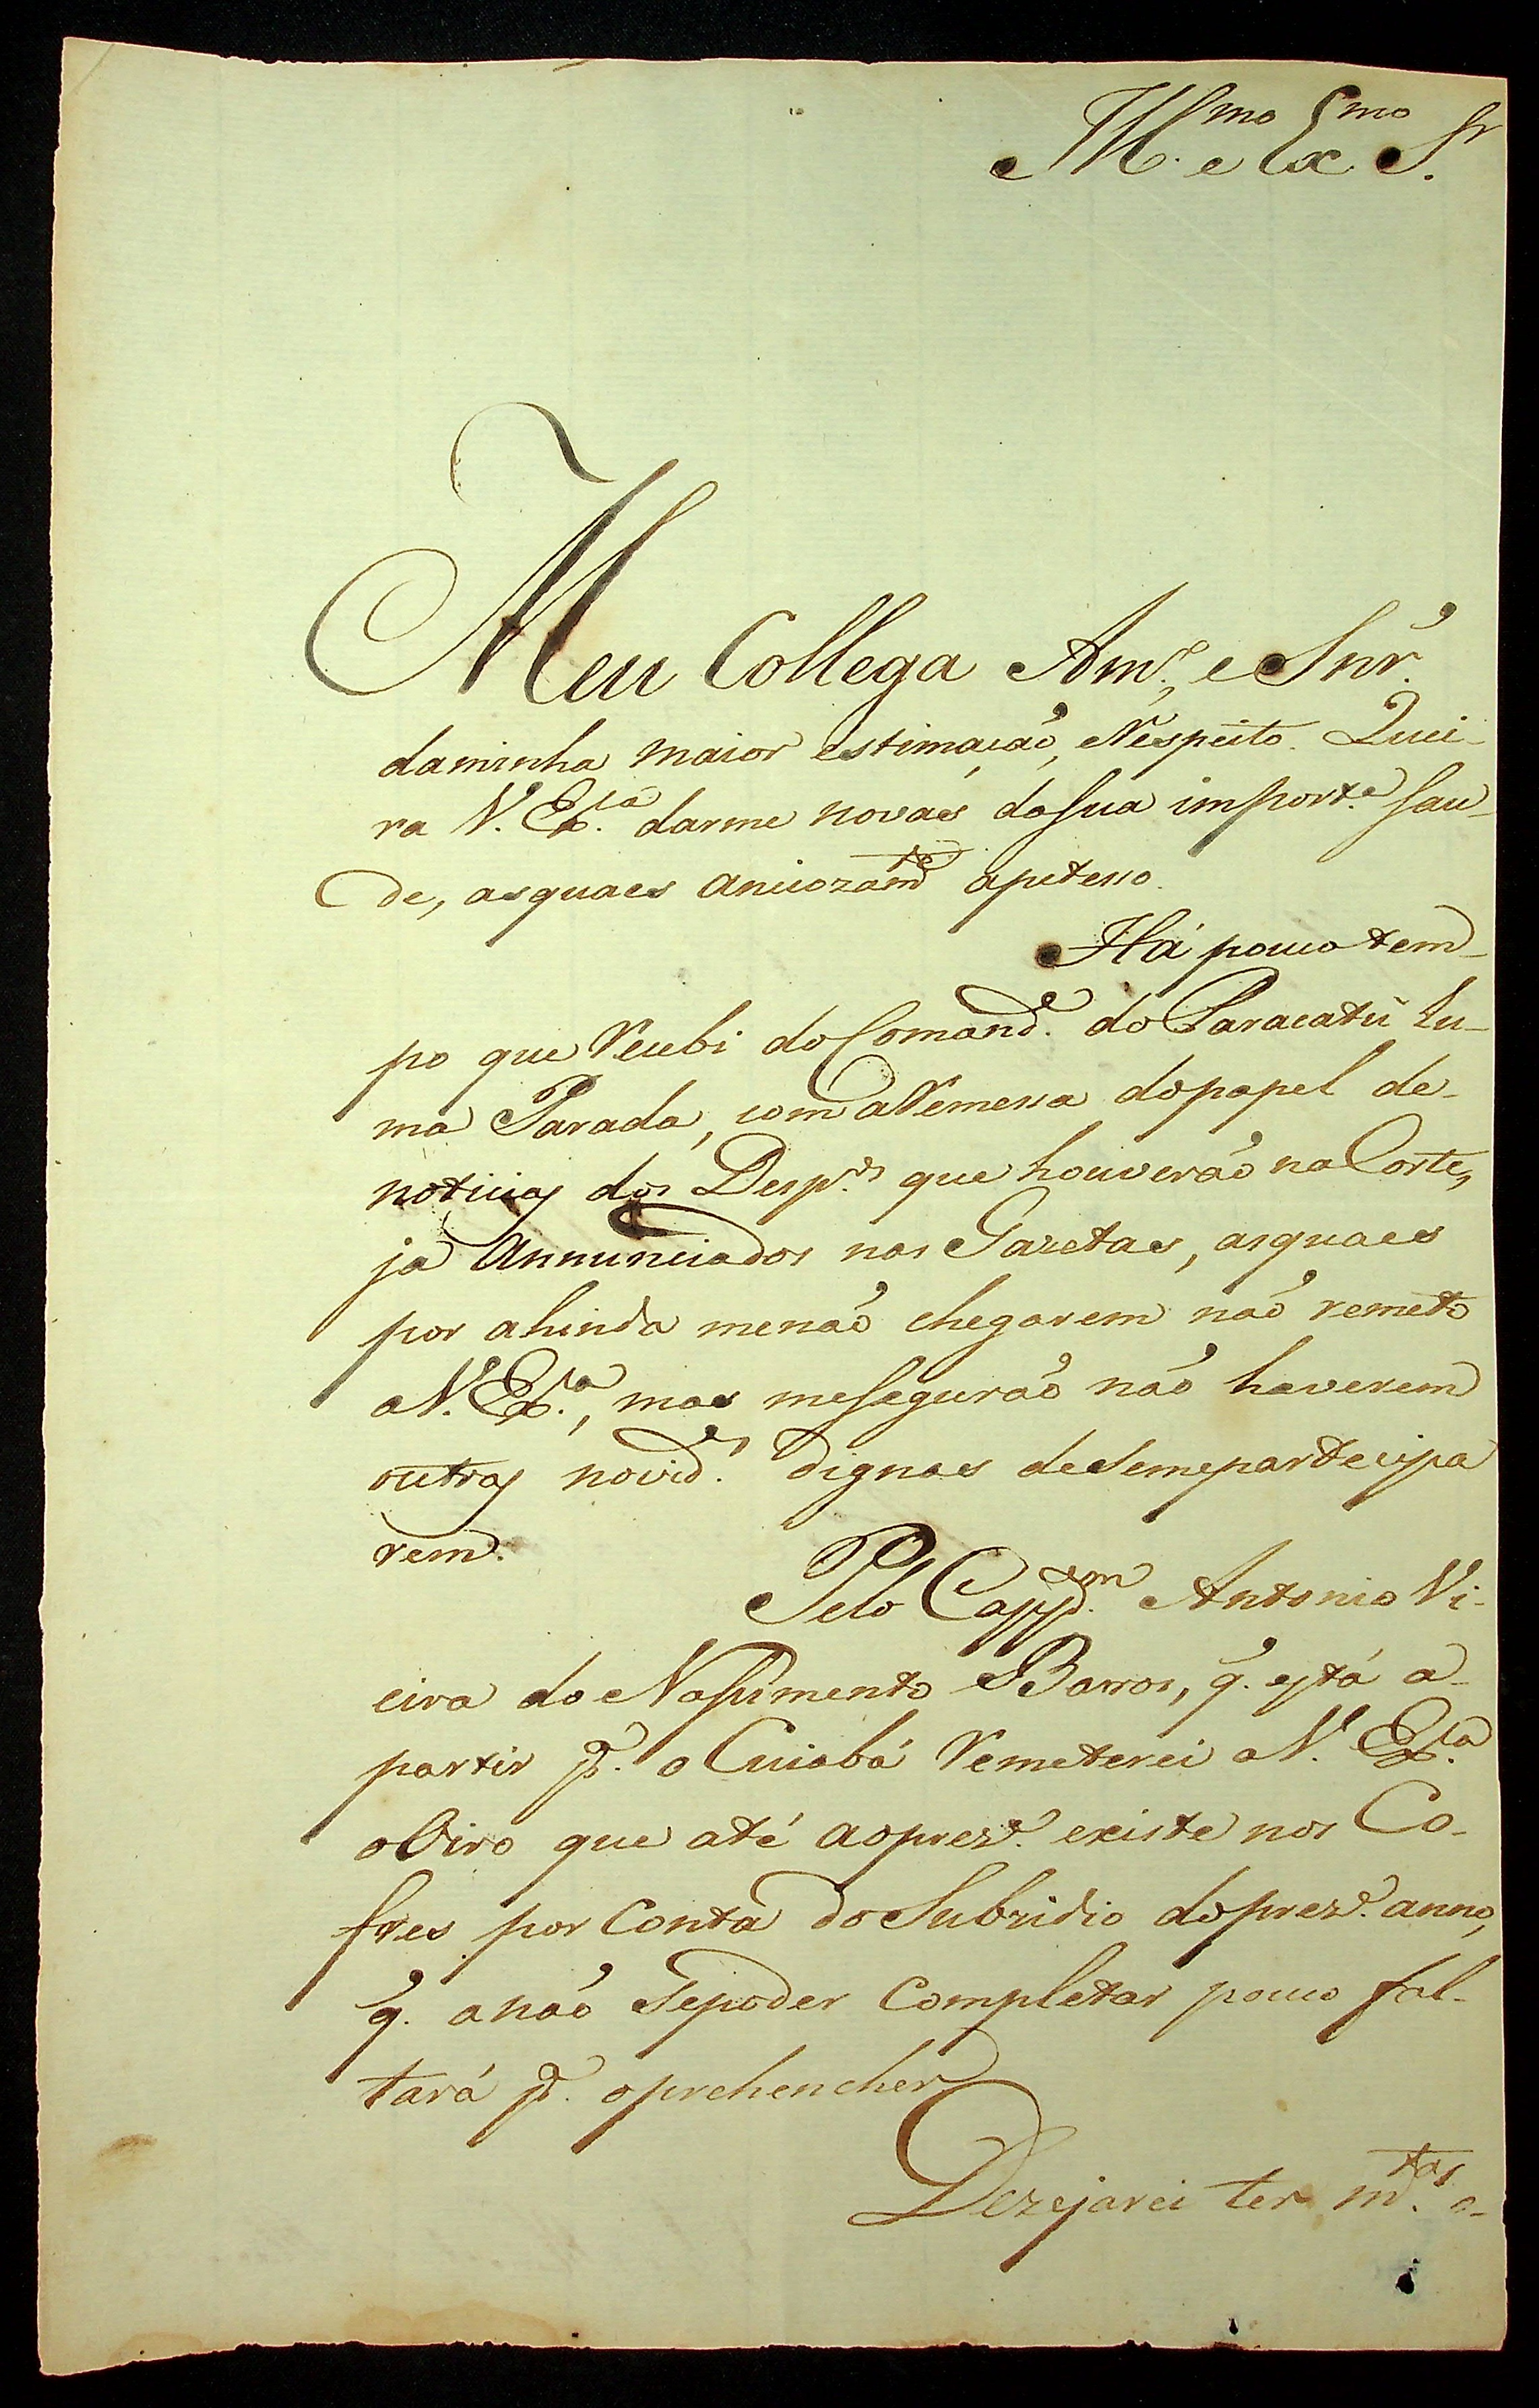 Ill.mo e Ex.mo S.r
Meu Collega Am.o, e Snr.
daminha maior estimação, Respeito. Quei-
ra V. Ex.cia darme novas dasua import.e sau-
de, asquaes anciozam.te apetesso.
Há pouco tem-
po que recebi do Comand.e do Paracatú hu-
ma Parada, com aRemessa dopapel de-
noticias dos Desp.os que houverão na Corte,
ja Annunciados nas Gazetas, asquaes
por ahinda menão chegarem não remeto
aV. Ex.cia, mas mesegurão não haverem
outras novid.es dignas desemeparteciparem
rem.
Pelo Capp.am Antonio Vi-
eira do Nassimento Barros, q. está a-
partir p.a o Cuiabá Remeterei aV. Ex.cia
oOiro que até aoprez.e existe nos Co-
fres por conta do Subzidio doprez.e anno,
q. anão sepoder completar pouco fal-
tará p.a oprehencher
Dezejarei ter m.tas o-